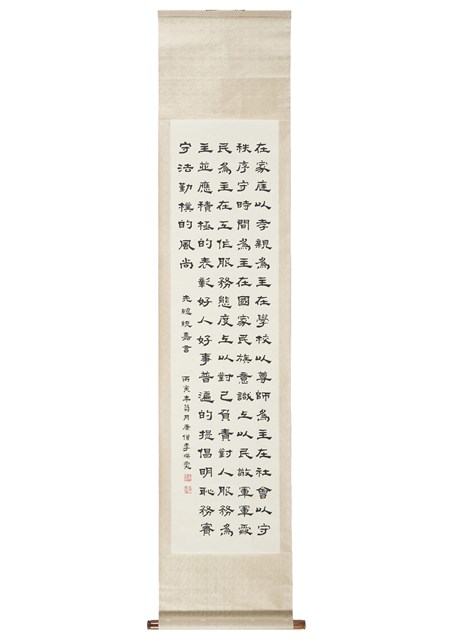 在家庭以孝親為主在學校以尊師為主在社會以守
秩序守時間為主在國家民族意識上以民敬軍軍愛
民為主在工作服務態度上以對己負責對人服務為
主並應積極的表彰好人好事普遍的提倡明恥務實
守法勤樸的風尚
先總統嘉言
丙寅年菊月